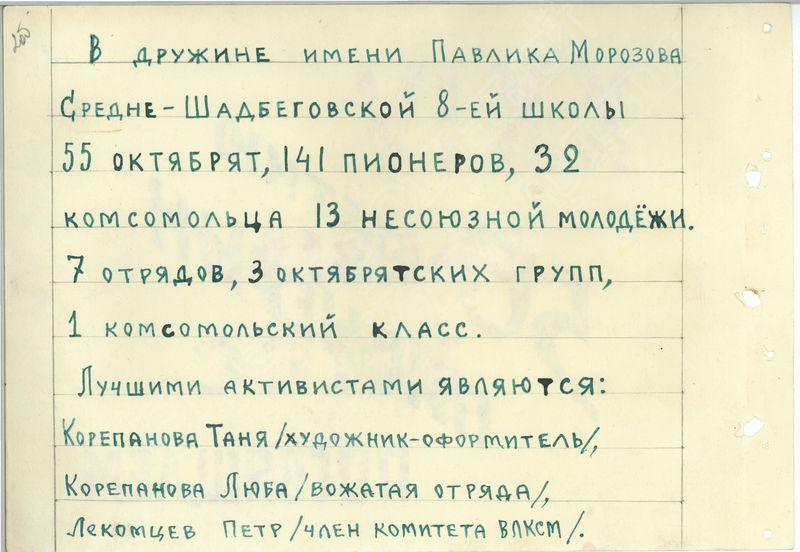 В дружине имени Павлика Морозова
Средне-Шадбеговской 8-ей школы
55 октябрят, 141 пионеров, 32
комсомольца 13 несоюзной молодёжи.
7 отрядов, 3 октябрятских групп,
1 комсомольский класс.
Лучшими активистами являются:
Корепанова Таня /художник-оформитель/,
Корепанова Люба /вожатая отряда/,
Лекомцев Петр /член комитета ВЛКСМ/.